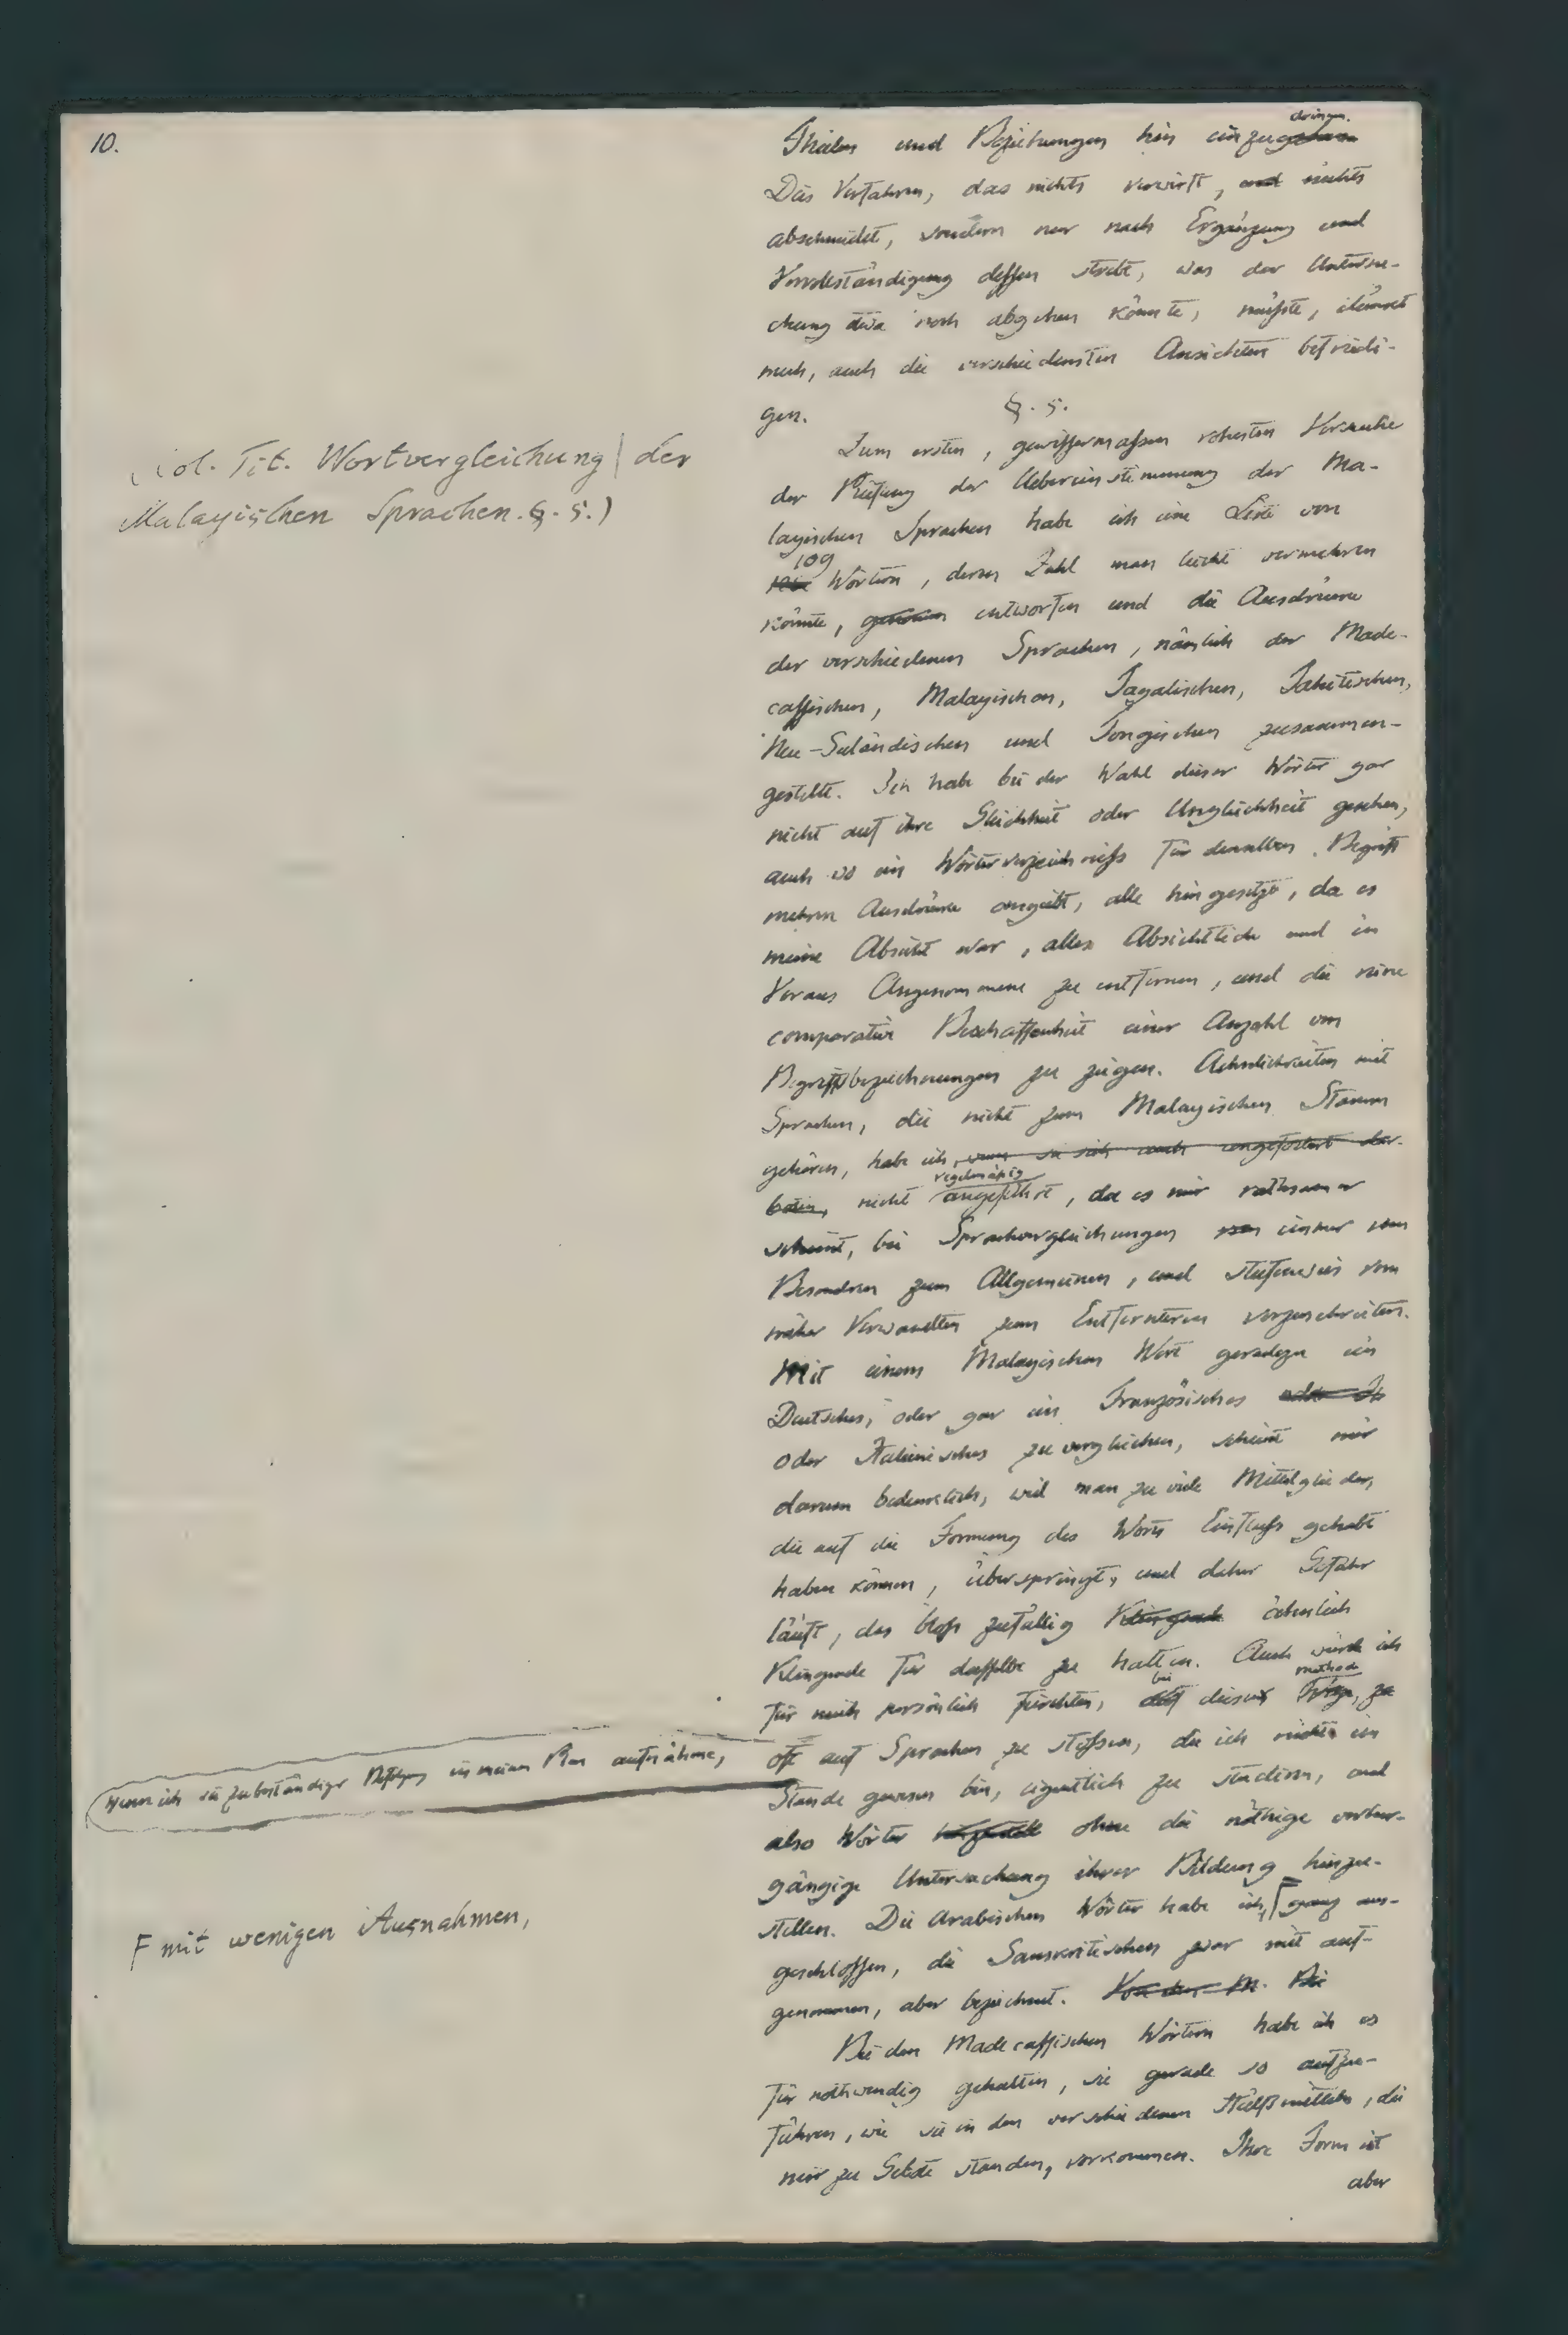 10.
Theilen und Beziehungen hin einzugehen dringen.
Das Verfahren, das nichts verwirft, und nichts
abschneidet, sondern nur nach Ergänzung und
Vervollständigung dessen strebt, was der Untersu-
chung etwa noch abgehen könnte, müßte,
mich, auch die verschiedensten Ansichten befriedi-
gen.
§. 5.
(Col. Tit. Wortvergleichung | der
Malayischen Sprachen. §. 5.)
Zum ersten, gewissermaßen rohesten Versuche
der Prüfung der Uebereinstimmung der Ma-
layischen Sprachen habe ich eine Liste von
109 Wörtern, deren Zahl man leicht vermehren
könnte, entworfen und die Ausdrücke
der verschiedenen Sprachen, nämlich der Made-
cassischen, Malayischen, Tagalischen, Tahitischen,
Neu-Seeländischen und Tongischen zusammen-
gestellt. Ich habe bei der Wahl dieser Wörter gar
nicht auf ihre Gleichheit oder Ungleichheit gesehen,
auch wo ein Wörterverzeichniß für denselben Begriff
mehrere Ausdrücke angiebt, alle hingesetzt, da es
meine Absicht war, alles Absichtliche und im
Voraus Angenommene zu entfernen, und die reine
comparative Beschaffenheit einer Anzahl von
Begriffsbezeichnungen zu zeigen. Aehnlichkeiten mit
Sprachen, die nicht zum Malayischen Stamm
gehören, habe ich, wenn sie sich auch ungefordert dar-
boten, nicht regelmäßig angeführt, da es mir rathsamer
scheint, bei Sprachvergleichungen immer vom
Besondren zum Allgemeinen, und stufenweis vom
näher Verwandten zum Entfernteren vorzuschreiten.
Mit einem Malayischen Wort geradezu ein
Deutsches, oder gar ein Französisches oder It
oder Italienisches zu vergleichen, scheint mir
darum bedenklich, weil man zu viele Mittelglieder,
die auf die Formung des Worts Einfluß gehabt
haben können, überspringt, und daher Gefahr
läuft, das bloß zufällig Klingende ähnlich
Klingende für dasselbe zu halten. Auch würde ich
für mich persönlich fürchten, auf bei dieser Wege, methode zu
wenn ich sie zu beständiger in meinen Plan aufnähme,
oft auf Sprachen zu stoßen, die ich nicht im
Stande gewesen bin, eigentlich zu studiren, und
also Wörter ohne die nöthige vorher-
gängige Untersuchung ihrer Bildung hinzu-
stellen. Die Arabischen Wörter habe ich, F ganz aus-
F mit wenigen Ausnahmen,
geschlossen, die Sanskritischen zwar mit auf-
genommen, aber bezeichnet. Von den M. Bei
Bei den Madecassischen Wörtern habe ich es
für nothwendig gehalten, sie gerade so aufzu-
führen, wie sie in den verschiedenen Hülfsmitteln, die
mir zu Gebote standen, vorkommen. Ihre Form ist
aber